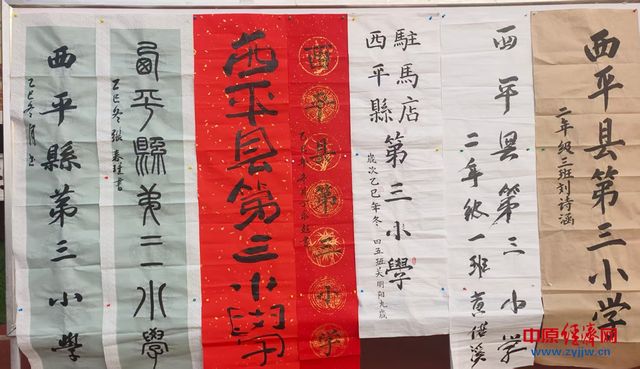 西平縣第三小學
乙巳冬月
西平縣第三小學
乙巳冬
西平县第三小學
西平县第三小学
駐馬店
西平縣
第三小學
歲次乙巳年冬 四五班吴明阳九歲
西平县第三小学
二年级一班
西平县第三小学
二年级三班刘诗涵
中原经济网
www.zyjjw.cn